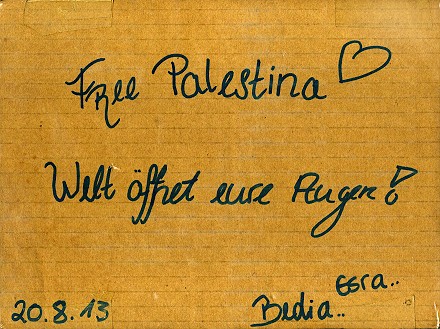 Free Palestina ♡
Welt öffnet eure Augen!
20.8.13 Bedia.. Esra..